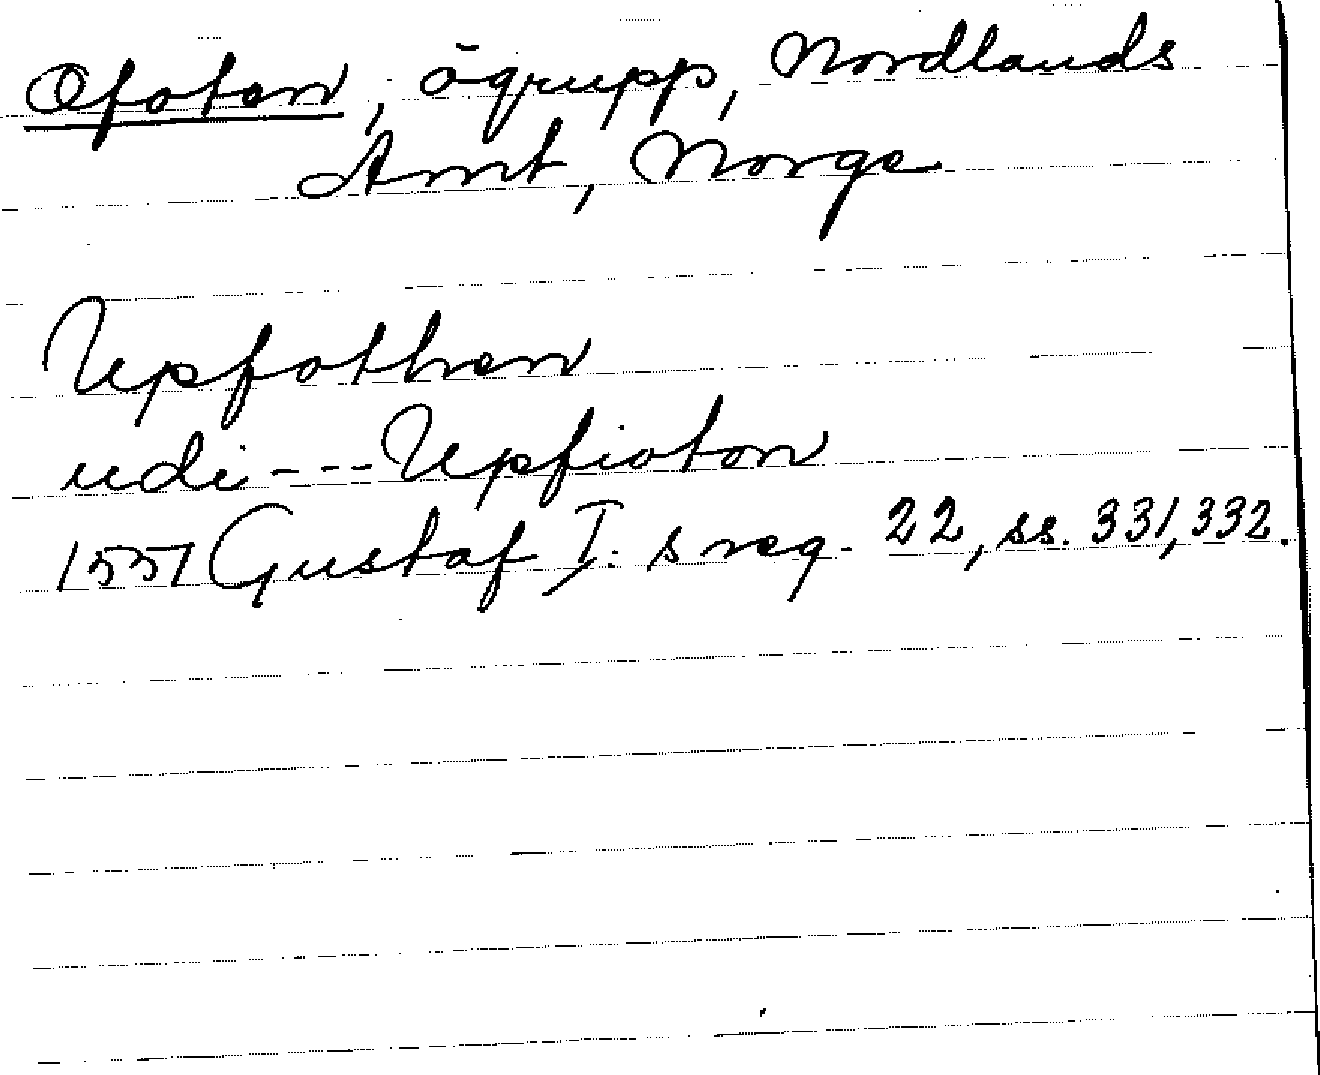 Ofoten, ögrupp, Nordlands
Amt, Norge
Upfothen
udi --- Upfioton
1551 Gustaf I:s reg. 22, ss. 331, 332.